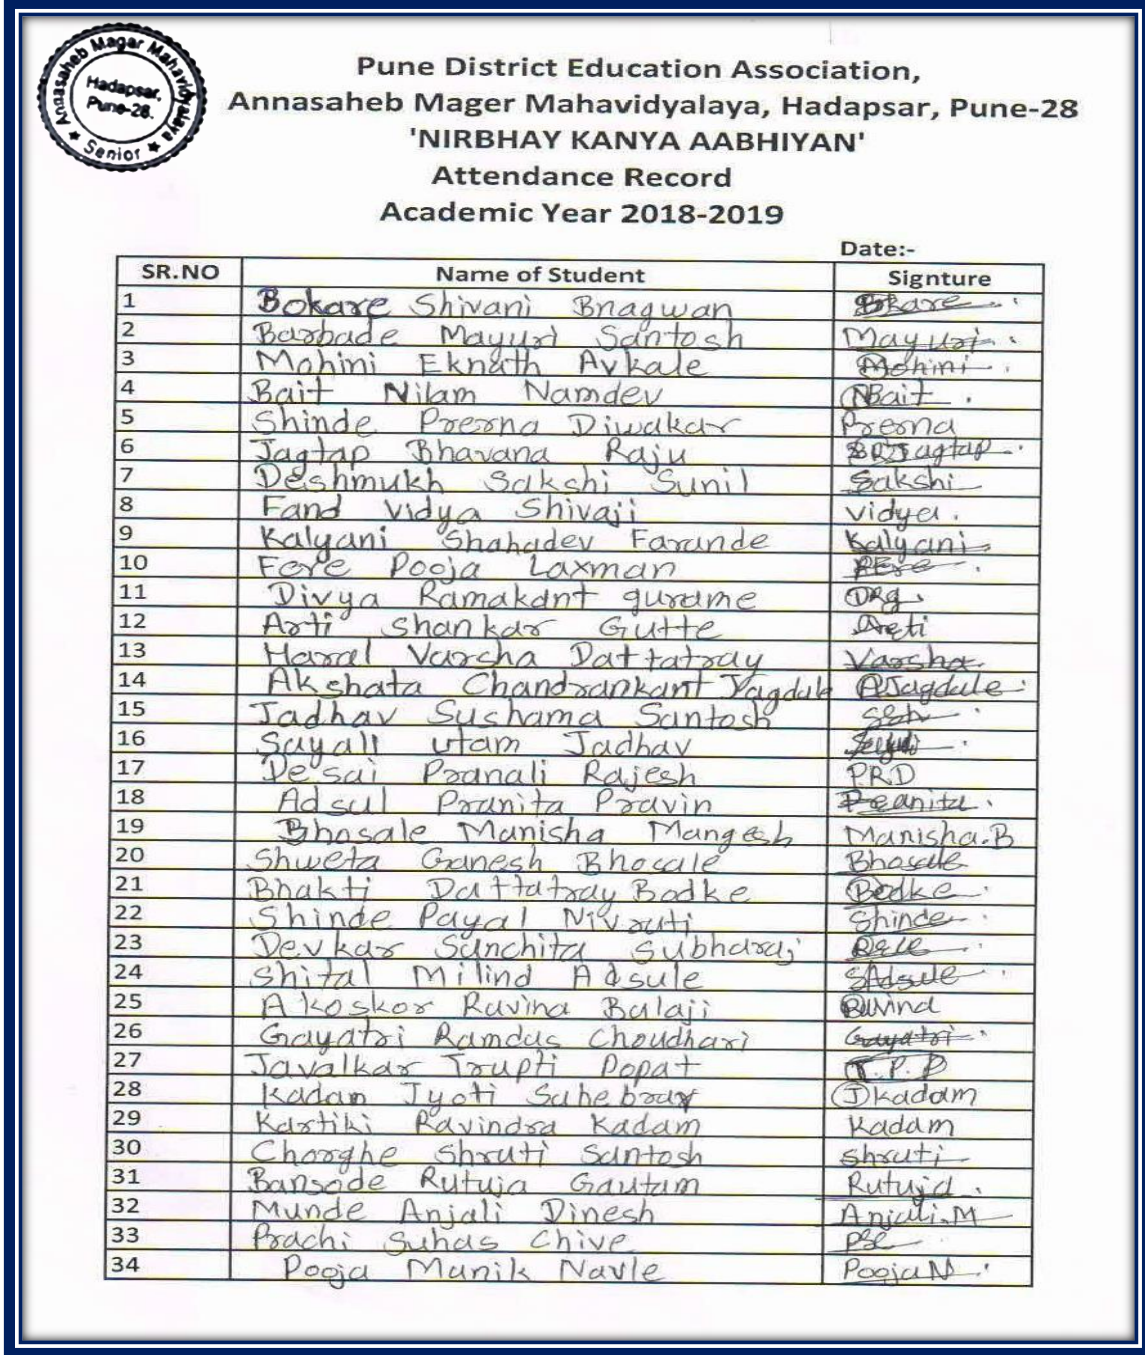 Annasaheb Magar Mahavidyalaya
Hadapsar,
Pune-28.
★ Senior ★
Pune District Education Association,
Annasaheb Mager Mahavidyalaya, Hadapsar, Pune-28
'NIRBHAY KANYA AABHIYAN'
Attendance Record
Academic Year 2018-2019
Date:-
SR.NO Name of Student Signture
1 Bokare Shivani Bhagwan Bokare
2 Barbade Mayuri Santosh Mayuri
3 Mohini Eknath Avkale Mohini
4 Bait Nilam Namdev NBait
5 Shinde Prerna Diwakar Prerna
6 Jagtap Bhavana Raju BRJagtap
7 Deshmukh Sakshi Sunil Sakshi
8 Fand Vidya Shivaji vidya
9 Kalyani Shahadev Farande Kalyani
10 Fere Pooja Laxman
11 Divya Ramakant gurame DRg
12 Arti Shankar Gutte Arti
13 Haral Varsha Dattatray Varsha
14 Akshata Chandrankant Jagdale AJagdale
15 Jadhav Sushama Santosh
16 Sayali utam Jadhav
17 Desai Pranali Rajesh PRD
18 Adsul Pranita Pravin Pranita
19 Bhosale Manisha Mangesh Manisha.B
20 Shweta Ganesh Bhosale Bhosale
21 Bhakti Dattatray Bodke Bodke
22 Shinde Payal Nivruti Shinde
23 Devkar Sanchita Subharaj
24 Shital Milind Adsule SAdsule
25 Akoskor Ravina Balaji Ravina
26 Gayatri Ramdas Choudhari Gayatri
27 Javalkar Trupti Popat T.P.P
28 Kadam Jyoti Sahebrav Jkadam
29 Kartiki Ravindra Kadam Kadam
30 Chorghe Shruti Santosh shruti
31 Bansode Rutuja Gautam Rutuja
32 Munde Anjali Dinesh Anjali.M
33 Prachi Suhas Chive PSC
34 Pooja Manik Navle PoojaN